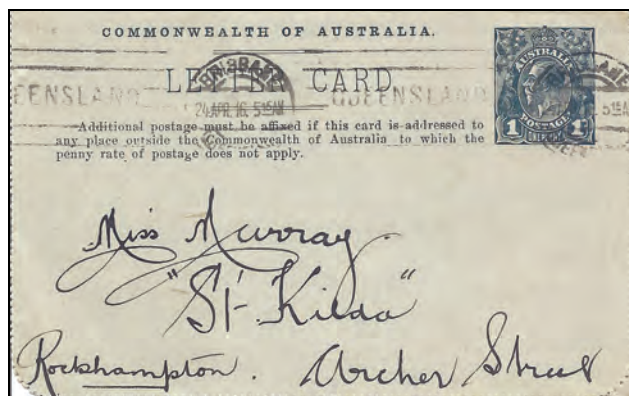 COMMONWEALTH OF AUSTRALIA.
LETTER CARD
BRISBANE
24 APR. 16. 5 15AM
QUEENSLAND
AUSTRALIA
1 POSTAGE 1
Additional postage must be affixed if this card is addressed to
any place outside the Commonwealth of Australia to which the
penny rate of postage does not apply.
Miss Murray.
"St. Kilda"
Rockhampton. Archer Street